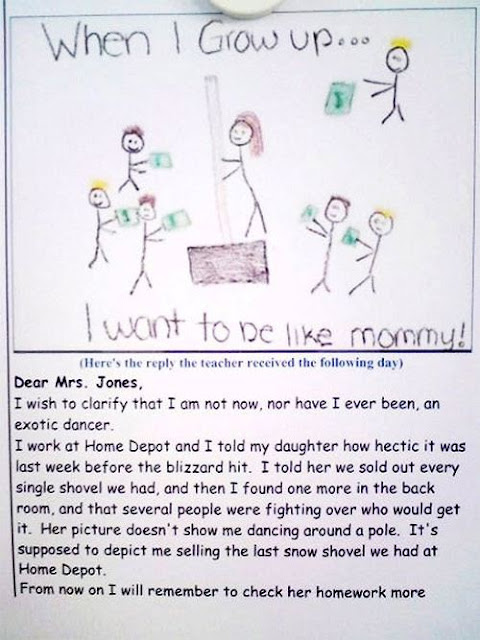 When I Grow up...
I want to be like mommy!
(Here's the reply the teacher received the following day)
Dear Mrs. Jones,
I wish to clarify that I am not now, nor have I ever been, an
exotic dancer.
I work at Home Depot and I told my daughter how hectic it was
last week before the blizzard hit. I told her we sold out every
single shovel we had, and then I found one more in the back
room, and that several people were fighting over who would get
it. Her picture doesn't show me dancing around a pole. It's
supposed to depict me selling the last snow shovel we had at
Home Depot.
From now on I will remember to check her homework more